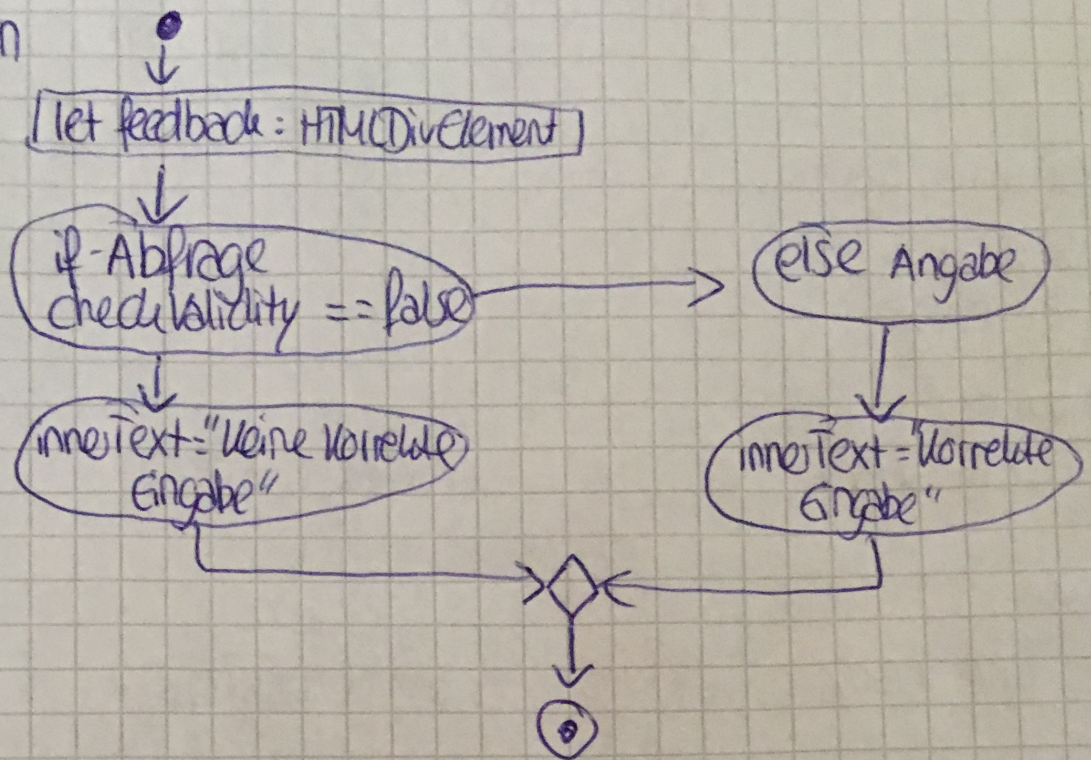 n
let feedback: HTMLDivElement
if-Abfrage
checkValidity == false
else Angabe
innerText="Keine Korrekte
Eingabe"
innerText="Korrekte
Eingabe"